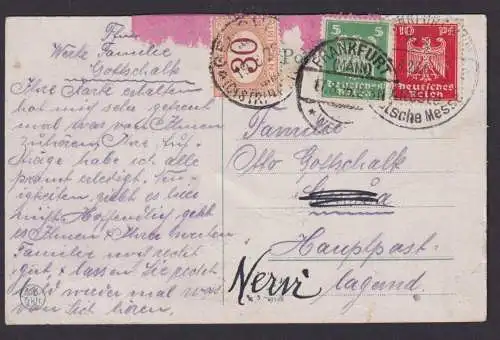 Werte Familie
Gottschalk
Ihre Karte erhalten
hat mich sehr gefreut
mal was von Ihnen
zu hören. Ihre Auf-
träge habe ich alle
prompt erledigt. Neu-
igkeiten giebt es hier
nicht. Hoffentlich geht
es Ihnen & Ihrer werten
Familie noch recht
gut, & lassen Sie recht
bald wieder mal was
von Sich hören.
30
5 5
10 Pf.
Deutsches
Reich
Deutsches
Reich
FRANKFURT
(MAIN)
Deutsche Messe
Familie
Otto Gottschalk
Hauptpost-
lagernd.
Nervi